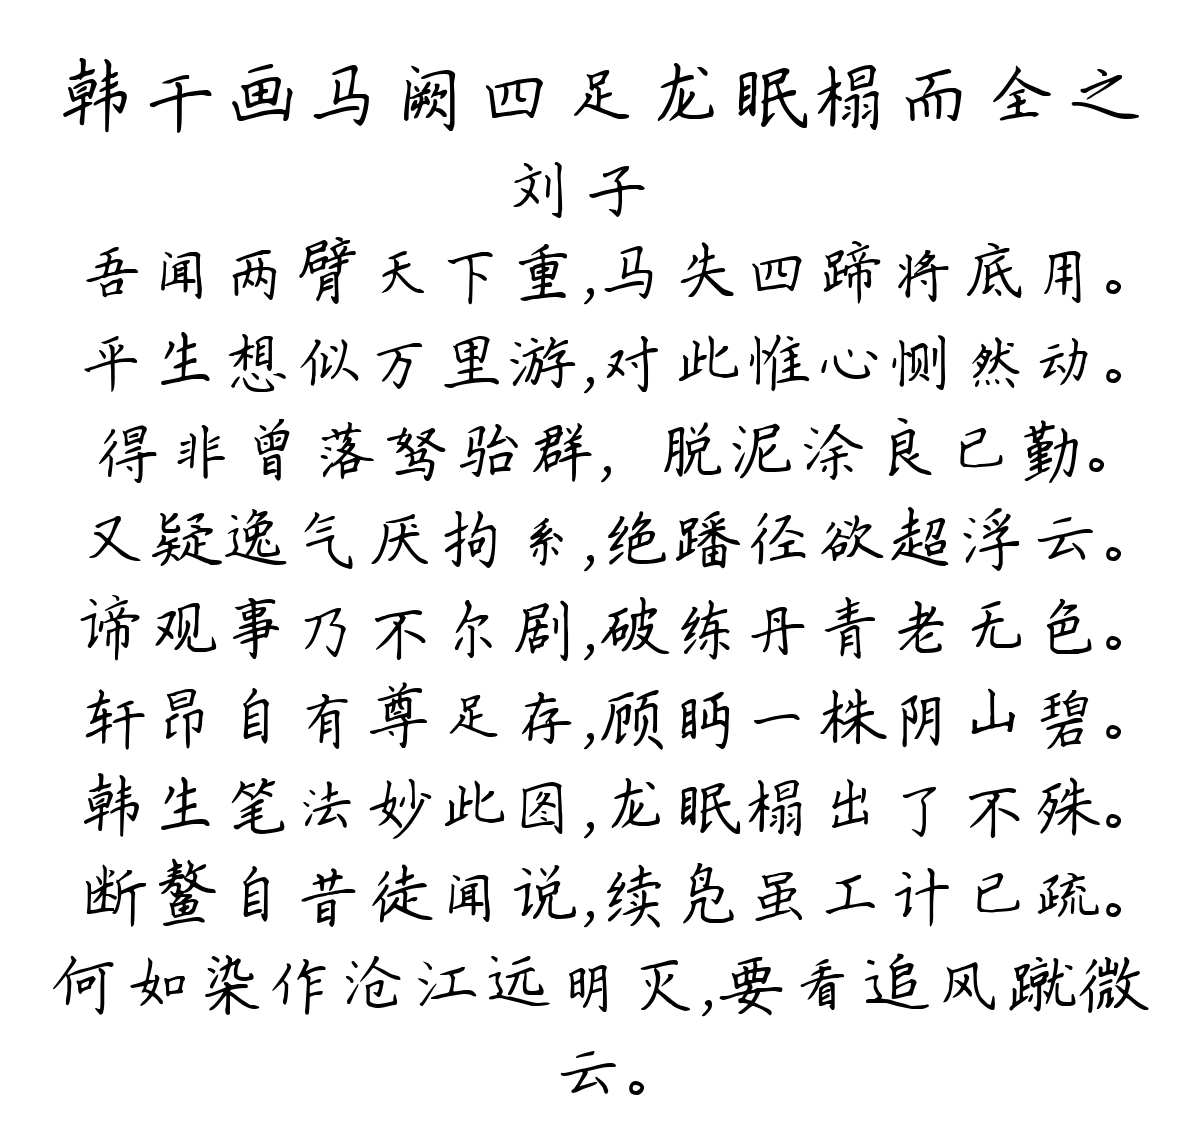 韩干画马阙四足龙眠榻而全之
刘子
吾闻两臂天下重,马失四蹄将底用。
平生想似万里游,对此惟心恻然动。
得非曾落驽骀群,脱泥涂良已勤。
又疑逸气厌拘系,绝蹯径欲超浮云。
谛观事乃不尔剧,破练丹青老无色。
轩昂自有尊足存,顾眄一株阴山碧。
韩生笔法妙此图,龙眠榻出了不殊。
断鳌自昔徒闻说,续凫虽工计已疏。
何如染作沧江远明灭,要看追风蹴微
云。